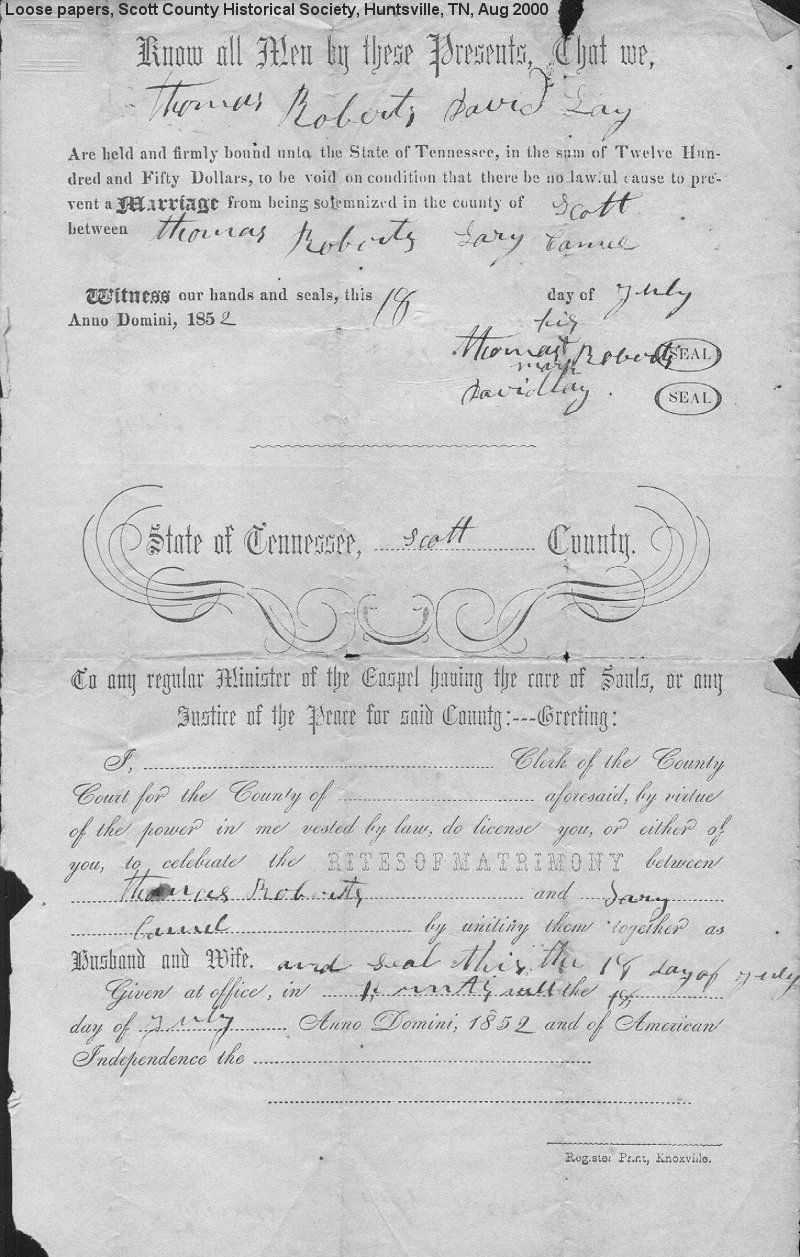 Loose papers, Scott County Historical Society, Huntsville, TN, Aug 2000
Know all Men by these Presents, That we,
Thomas Roberts David Lay
Are held and firmly bound unto the State of Tennessee, in the sum of Twelve Hun-
dred and Fifty Dollars, to be void on condition that there be no lawful cause to pre-
vent a Marriage from being solemnized in the county of Scott
between Thomas Roberts
Witness our hands and seals, this 18 day of July
Anno Domini, 1852
his
Thomas Roberts SEAL
mark
David Lay SEAL
State of Tennessee, Scott County.
To any regular Minister of the Gospel having the care of Souls, or any
Justice of the Peace for said County:---Greeting:
I, Clerk of the County
Court for the County of aforesaid, by virtue
of the power in me vested by law, do license you, or either of
you, to celebrate the RITES OF MATRIMONY between
Thomas Roberts and
by uniting them together as
Husband and Wife. and seal this the 18 day of July
Given at office, in the 18
day of July Anno Domini, 1852 and of American
Independence the
Register Print, Knoxville.